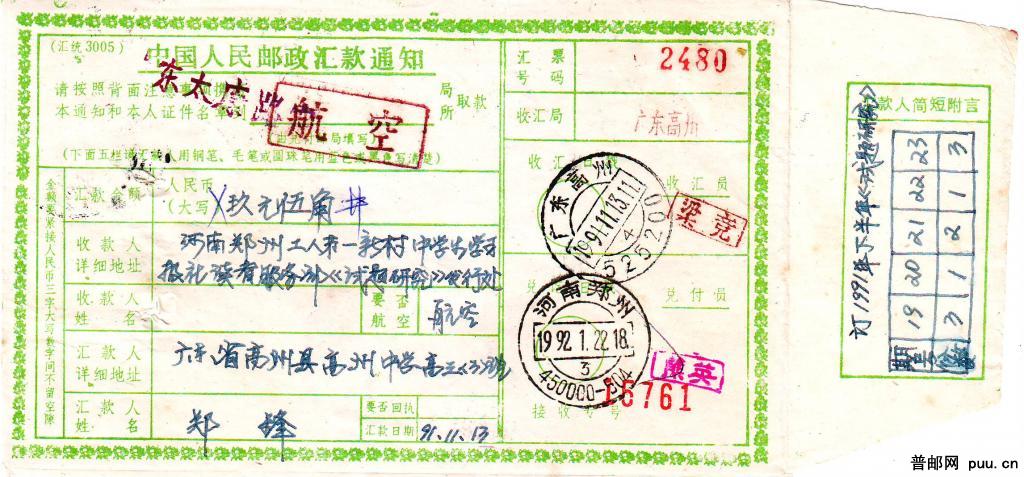 (汇统3005)
中国人民邮政汇款通知
请按照背面注意事项携
本通知和本人证件名章到
局
所
取款
东太康
航空
局填写
(下面五栏请汇款人用钢笔、毛笔或圆珠笔用蓝色或黑色写清楚)
金额要紧接人民币三字大写数字间不留空隙
汇款金额
人民币
(大写)
玖元伍角
收款人
详细地址
河南郑州工人第一新村中学生学习
报社读者服务部《试题研究》发行处
收款人
姓名
要否
航空
航空
汇款人
详细地址
广东省高州县高州中学高三
汇款人
姓名
郑锋
要否回执
汇款日期
91.11.13
汇票
号码
2480
收汇局
广东高州
收汇日戳
收汇员
广东高州
1991.11.13.11
4
525200
梁竞
兑付员
河南郑州
1992.1.22.18
3
450000-804
英
16761
接收号
款人简短附言
订1991年下半年《试题研究》
期号 19 20 21 22 23
3 1 2 1 3
普邮网 puu.cn